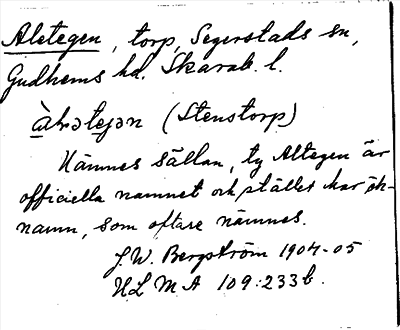 Aletegen, torp, Segerstads sn,
Gudhems hd. Skarab. l.
(Stenstorp)
Nämnes sällan, ty Altegen är
officiella namnet och stället har ök-
namn, som oftare nämnes.
J. W. Bergström 1904-05
ULMA 109:233b.